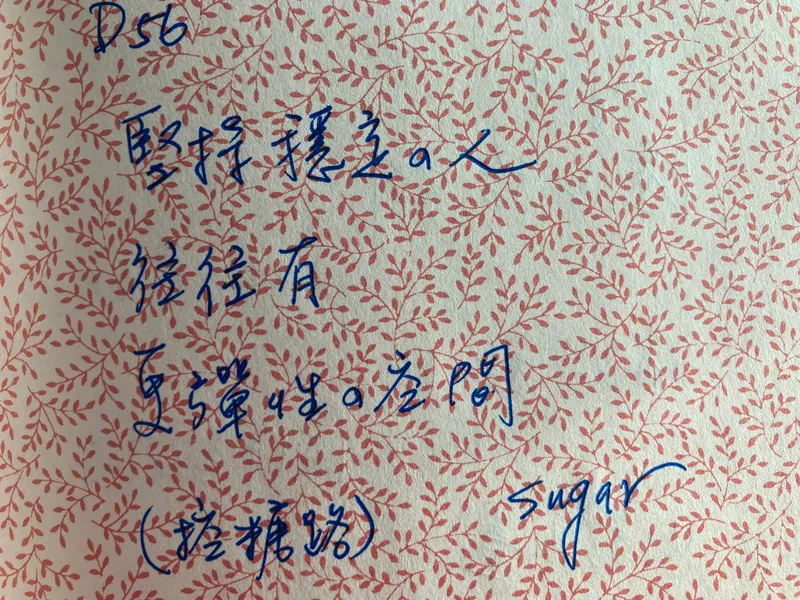 D56
堅持穩定の人
往往有
更彈性の空間
(控糖路) sugar